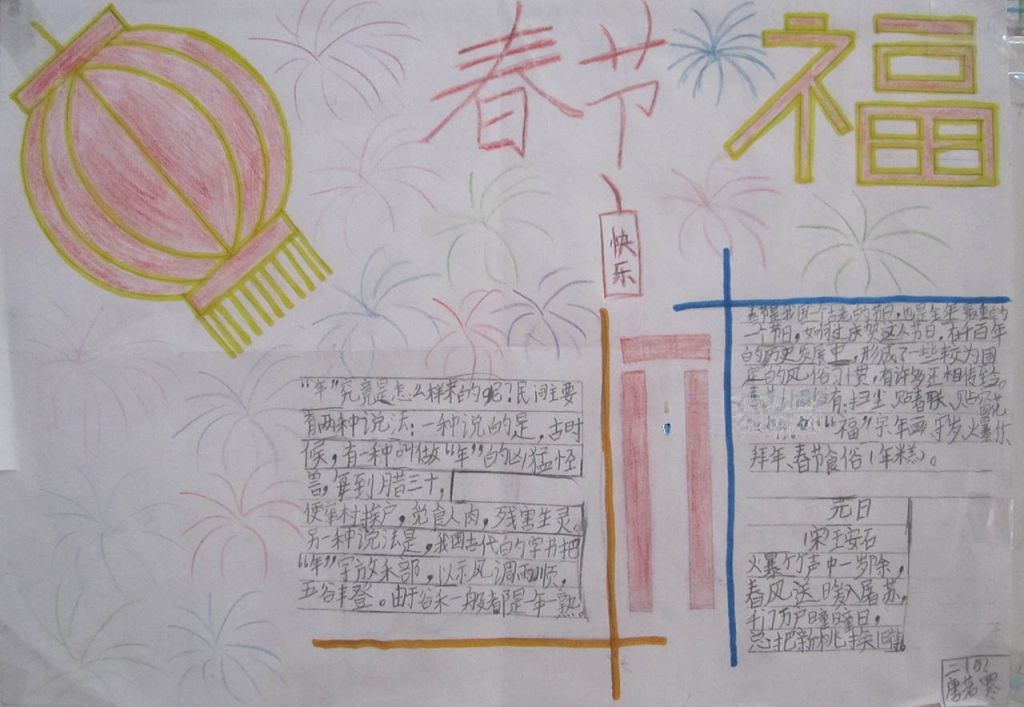 春节
福
快乐
“年”究竟是怎么样来的呢？民间主要
有两种说法：一种说的是，古时
候，有一种叫做“年”的凶猛怪
兽，每到腊月三十，
便窜村挨户，觅食人肉，残害生灵。
另一种说法是，我国古代的字书把
“年”字放禾部，以示风调雨顺，
五谷丰登。由于谷禾一般都是一年一熟。
春节是我国一个古老的节日，也是全年最重要的
一个节日，如何过庆贺这个节日，在千百年
的历史发展中，形成了一些较为固
定的风俗习惯，有许多还相传至今。
有：扫尘、贴春联、贴窗花
“福”字年画、守岁、火暴竹
拜年、春节食俗（年糕）。
元日
（宋）王安石
火暴竹声中一岁除，
春风送暖入屠苏。
千门万户曈曈日，
总把新桃换旧